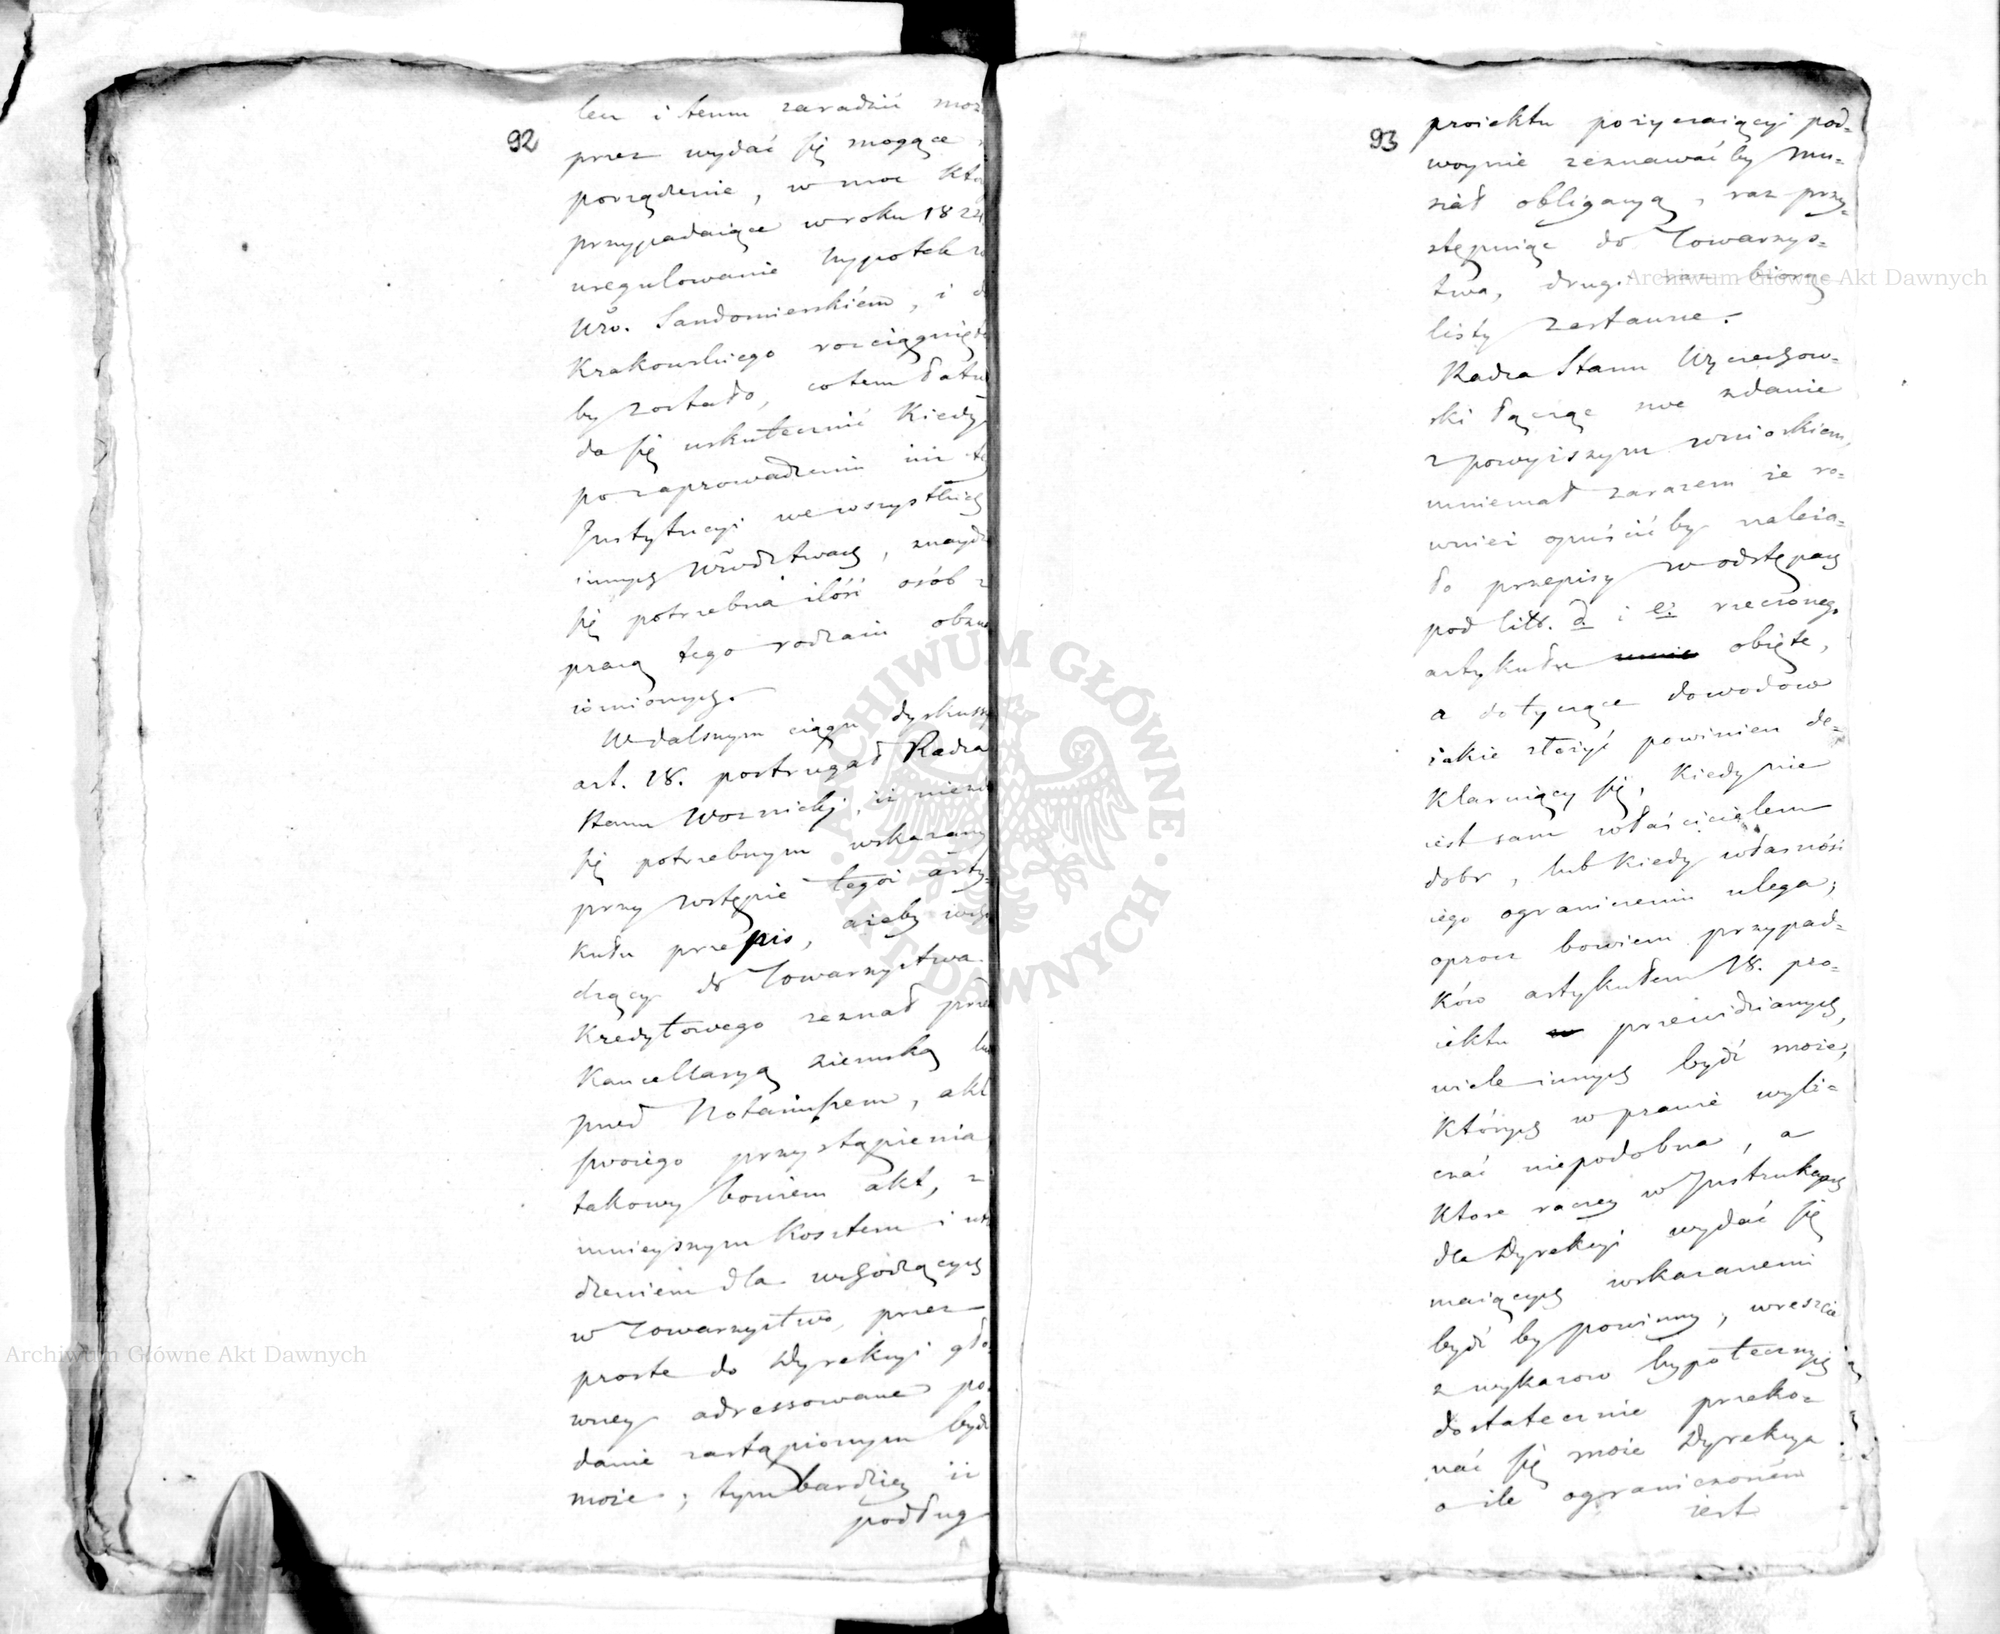 92
lecz i temu zaradzić moż
przez wydać się mogące
porządzenie, w moc któ
przypadaiące w roku 1824
uregulowanie hypotek w
Wdz. Sandomierskiém, i d
Krakowskiego rozciągnięte
by zostało, co tem łatw
da się uskutecznić kiedy
po zaprowadzeniu iuż tey
Instytucyi we wszystkich
innych Wództwach, znaydz
się potrzebna ilość osób z
pracą tego rodzaiu obzna
iomionych.
W dalszym ciągu dyskussy
art. 18. postrzegał Radca
Stanu Woznicki, iż niezd
się potrzebnym wskazany
przy wstępie tegoż arty-
kułu przepis, ażeby wcho
dzący do Towarzystwa
Kredytowego zeznał prze
Kancellaryą Ziemską lu
przed Notariuszem, akt
swoiego przystąpienia
takowy bowiem akt, z
mnieyszym kosztem i utr
dzeniem dla wchodzących
w Towarzystwo, przez
proste do Dyrekcyi głó
wney adressowane po
danie zastąpionym bydź
może; tym bardziey iż
podług
93
proiektu pożyczaiący pod-
woynie zeznawać by mu-
siał obligacyą, raz przy-
stępuiąc do Towarzys-
twa, drugi raz biorąc
listy zastawne.
Radca Stanu Wyczechow-
ski łącząc swe zdanie
z powyższym wnioskiem,
mniemał zarazem że ró-
wnież opuścić by należa-
ło przepisy w odstępach
pod litt. d. i e. rzeczonego
artykułu obięte,
a dotyczące dowodów
iakie złożyć powinien de-
klaruiący się, kiedy nie
iest sam właścicielem
dobr, lub kiedy własność
iego ograniczeniu ulega;
oprocz bowiem przypad-
ków artykułem 18. pro-
iektu przewidzianych,
wiele innych bydź może,
których w prawie wyli-
czać niepodobna, a
które raczey w Instrukcyach
dla Dyrekcyi wydać się
maiących wskazanemi
bydź by powinny, wreszcie
z wykazow hypotecznych
dostatecznie przeko-
nać się może Dyrekcya
o ile ograniczoném
iest
Archiwum Główne Akt Dawnych
Archiwum Główne Akt Dawnych
ARCHIWUM GŁÓWNE · AKT DAWNYCH ·